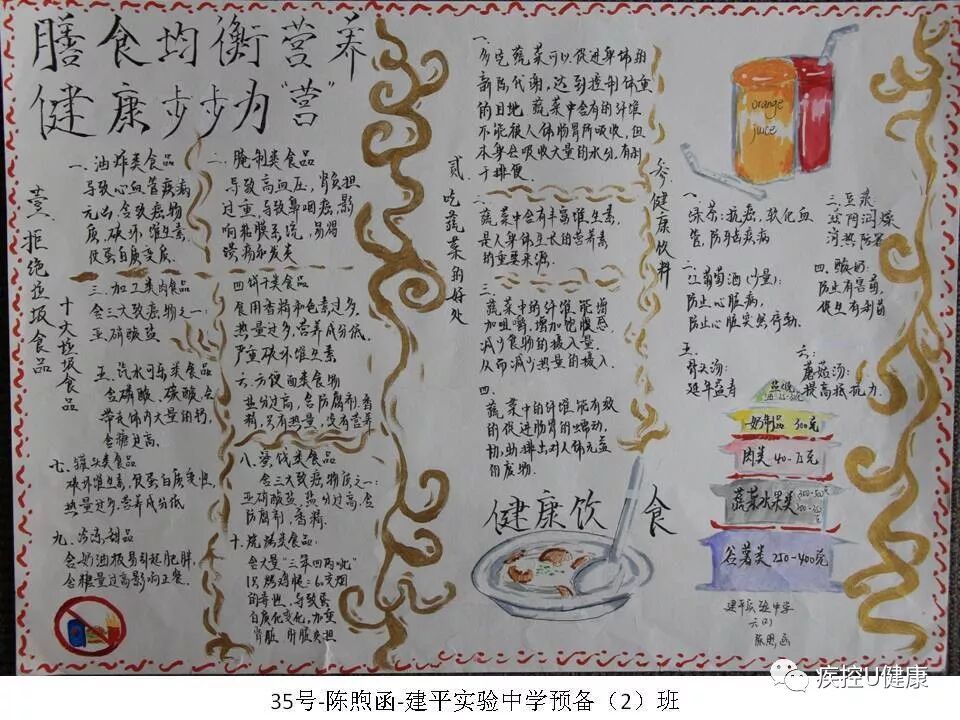 膳食均衡营养
健康步步为"营"
壹、拒绝垃圾食品
十大垃圾食品
一、油炸类食品
导致心血管疾病
元凶,含致癌物
质,破坏维生素,
使蛋白质变质.
二、腌制类食品
导致高血压,肾负担
过重,导致鼻咽癌,影
响粘膜系统,易得
溃疡和发炎
三、加工类肉食品
含三大致癌物之一:
亚硝酸盐
四.饼干类食品
食用香精和色素过多,
热量过多,营养成分低,
严重破坏维生素
五、汽水可乐类食品
含磷酸、碳酸,会
带走体内大量的钙,
含糖过高.
六.方便面类食物
盐分过高,含防腐剂、香
精,只有热量,没有营养
七、罐头类食品
破坏维生素,使蛋白质变性,
热量过多,营养成分低
八.烧烤类食品
含三大致癌物质之一:
亚硝酸盐,盐分过高,含
防腐剂,香精.
九、冷冻甜品
含奶油极易引起肥胖,
含糖量过高影响正餐.
十、烧烤类食品:
含大量"三苯四丙吡"
1只烤鸡腿=6支烟
的毒性,导致蛋
白质化变化,加重
肾脏、肝脏负担
贰、吃蔬菜的好处
一、
多吃蔬菜可以促进身体的
新陈代谢,达到控制体重
的目地.蔬菜中含有的纤维
不能被人体肠胃所吸收,但
本身会吸收大量的水分,有利
于排便.
二、
蔬菜中含有丰富维生素,
是人身体生长的营养素
的重要来源.
三、
蔬菜中的纤维能增
加咀嚼,增加饱腹感
减少食物的摄入量.
从而减少热量的摄入.
四.
蔬菜中的纤维能有效
的促进肠胃的蠕动,
协助排出对人体无益
的废物.
健康饮食
orange
juice
叁、健康饮料
一、
绿茶:抗癌,软化血
管,防牙齿疾病
二、
红葡萄酒(少量):
防止心脏病,
防止心脏突然停动.
三、豆浆
滋阴润燥
四、酸奶:
防止有害菌,
促生有利菌
五.
骨头汤:
延年益寿
六:
蘑菇汤:
提高抵抗力.
奶制品 300克
肉类 40-75克
蔬菜水果类
谷薯类 250-400克
建平实验中学
六(2)
陈煦函
疾控U健康
35号-陈煦函-建平实验中学预备（2）班